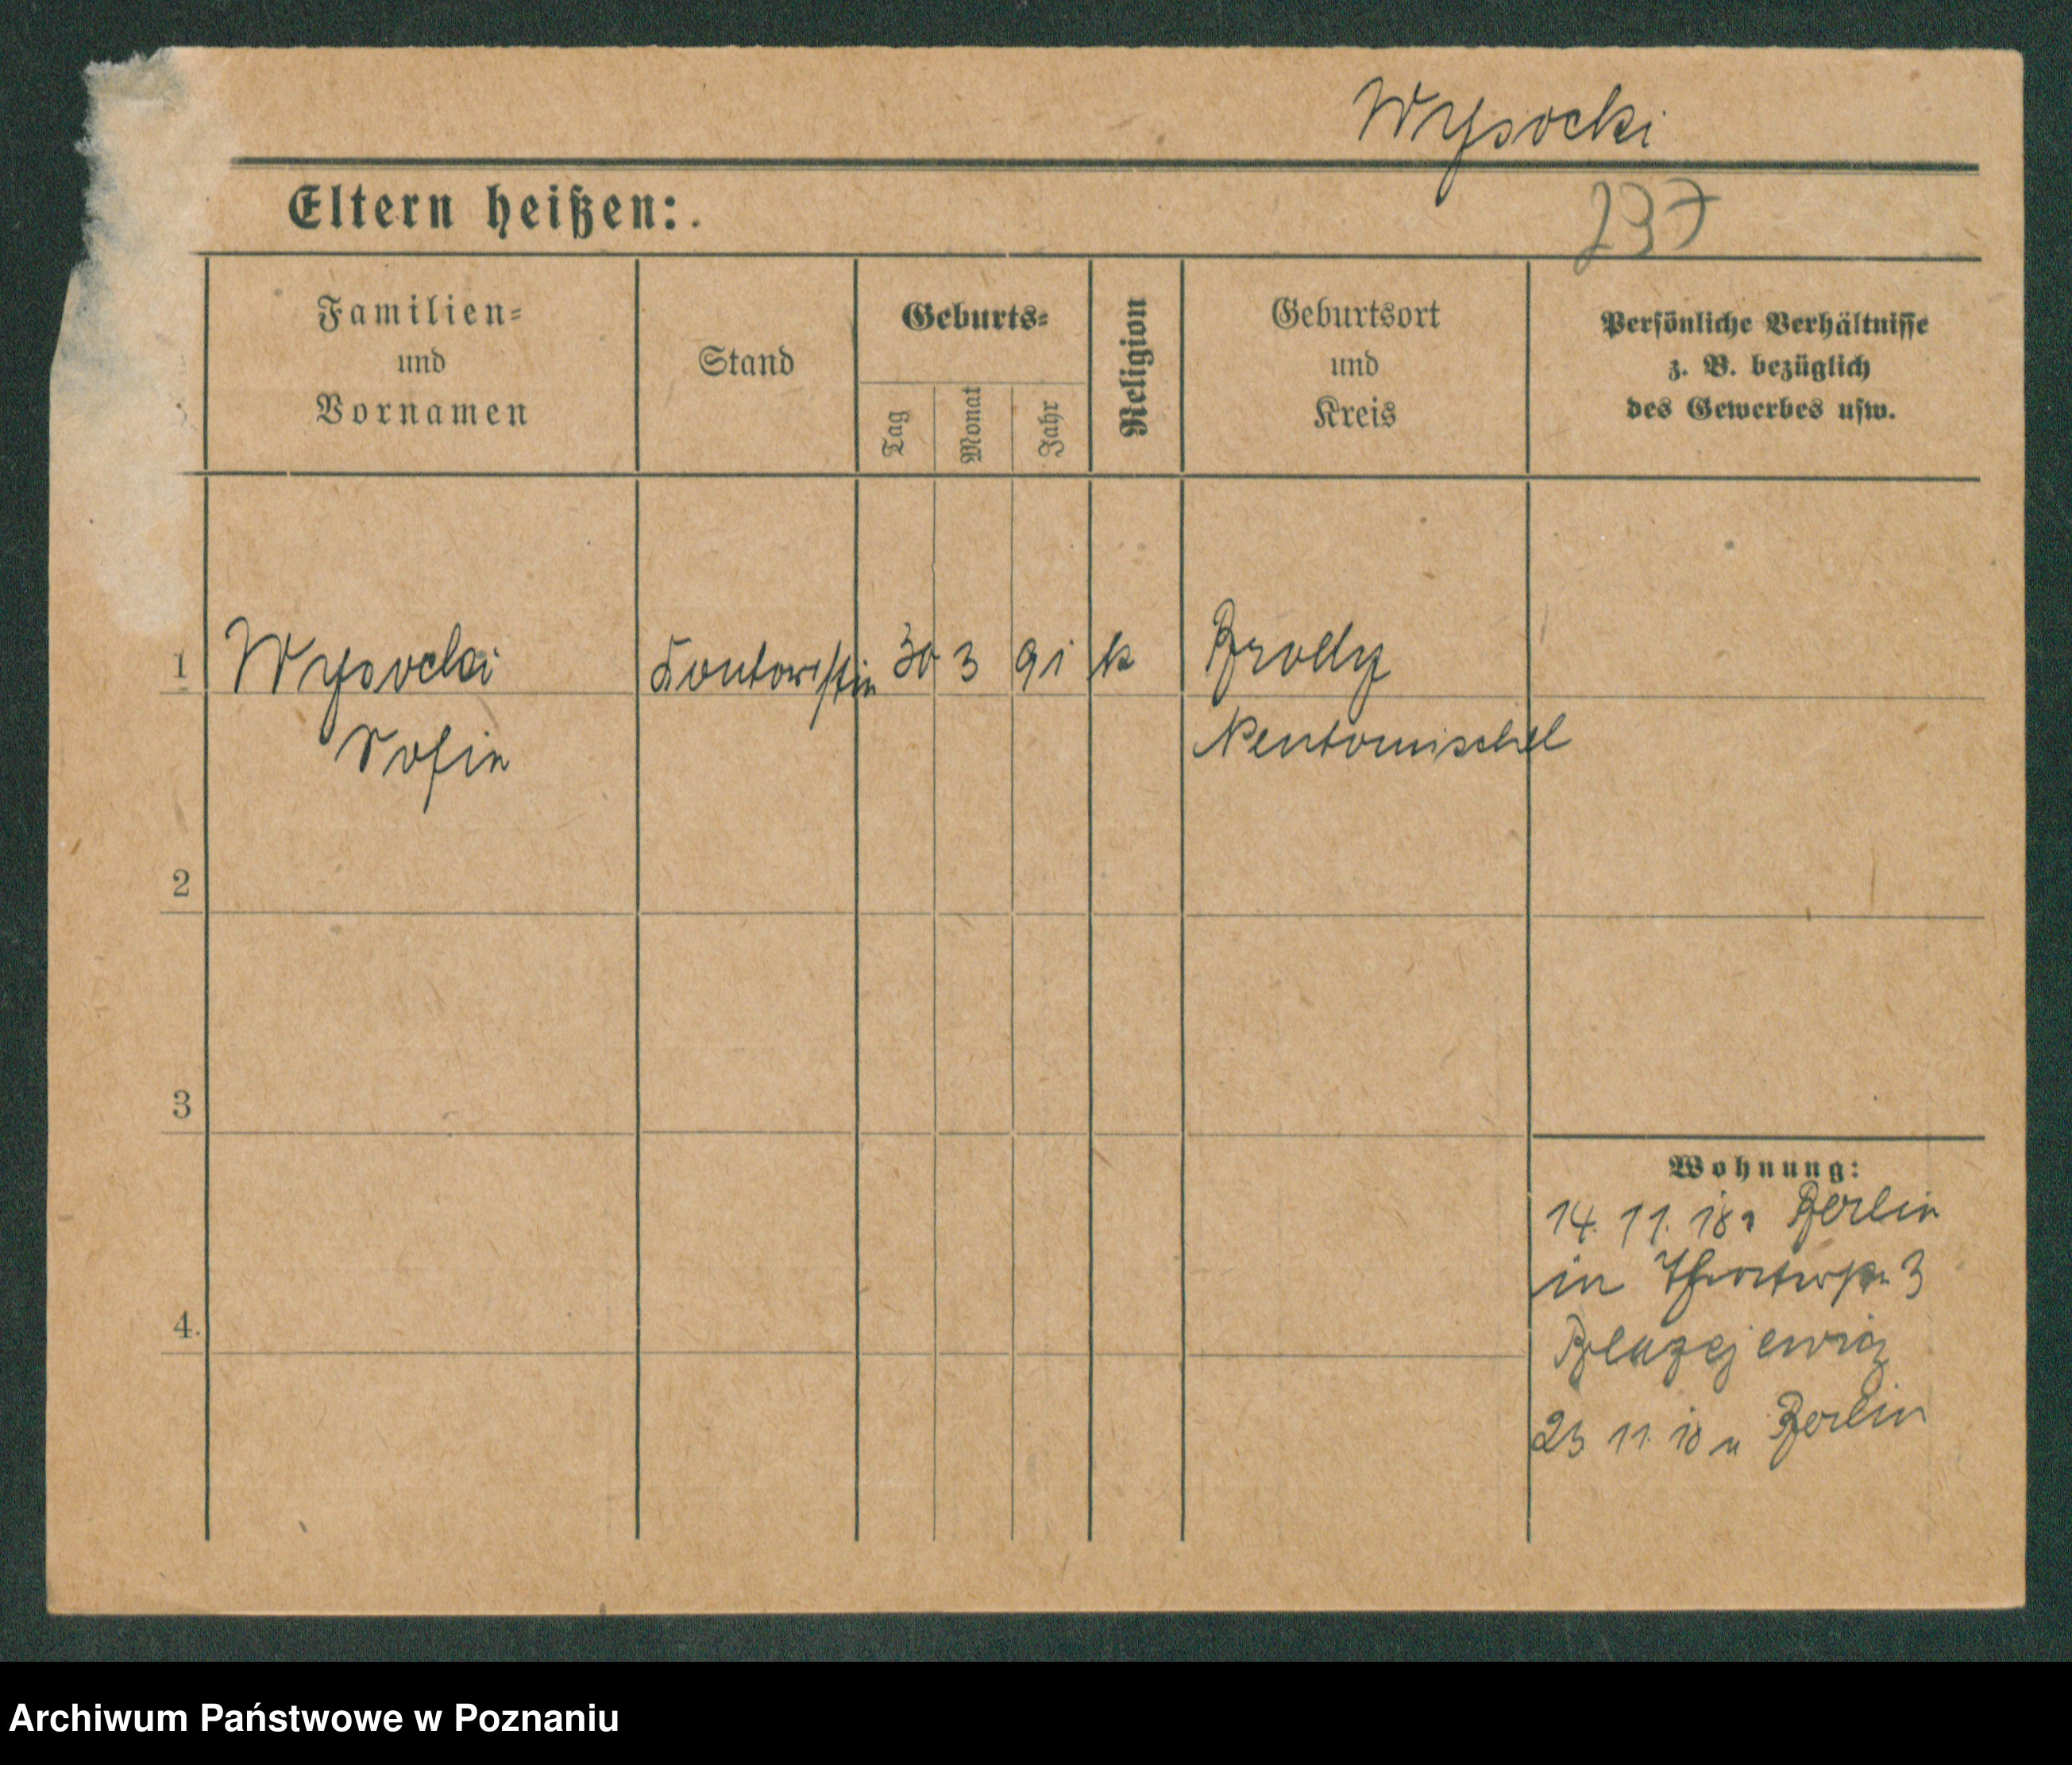 Wysocki
Eltern heißen:
237
Familien=
und
Vornamen
Stand
Geburts=
Tag
Monat
Jahr
Religion
Geburtsort
und
Kreis
Persönliche Verhältnisse
z. B. bezüglich
des Gewerbes usw.
1 Wysocki Kontoristin 30 3 91 k Brody
Sofie Neutomischel
2
3
4.
Wohnung:
14. 11. 18 Berlin
in 3
Blazejewicz
23 11. 18 n Berlin
Archiwum Państwowe w Poznaniu